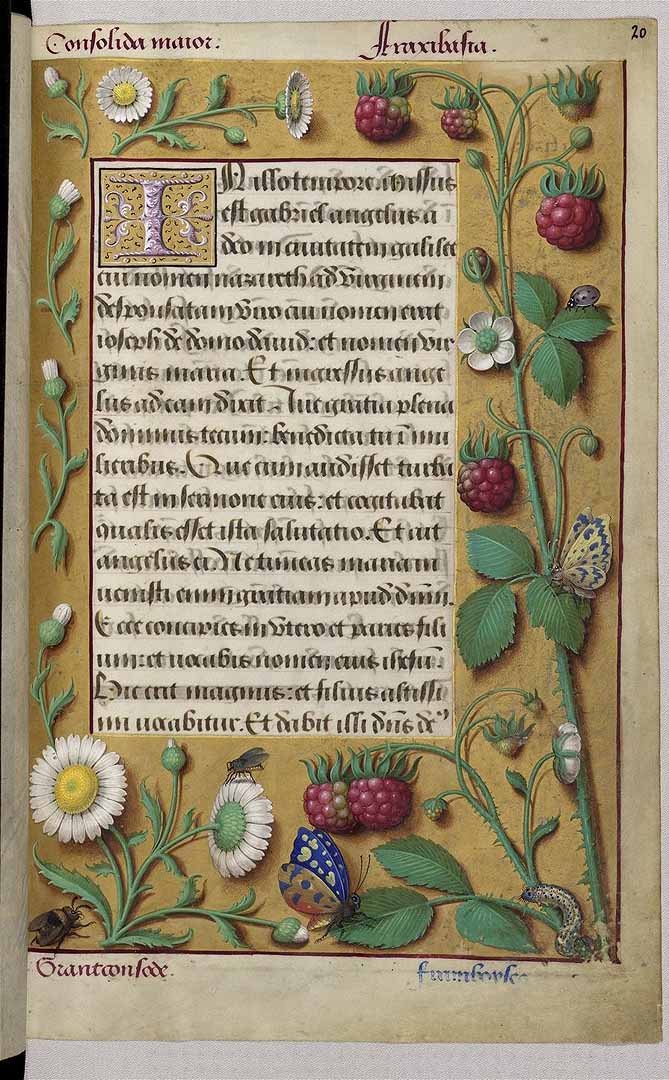 Consolida maior.
Fraxibasia.
20
IN illo tempore. Missus
est gabriel angelus a
deo in ciuitatem galilee
cui nomen nazareth ad virginem
desponsatam viro cui nomen erat
ioseph de domo dauid: et nomen vir
ginis maria. Et ingressus ange
lus ad eam dixit. Aue gratia plena
dominus tecum: benedicta tu ī mu
lieribus. Que cum audisset turba
ta est in sermone eius: et cogitabat
qualis esset ista salutatio. Et ait
angelus ei. Ne timeas maria
uenisti enim gratiam apud dūm.
Ecce concipies in vtero et paries fili
um: et uocabis nomen eius ihesū.
Hic erit magnus: et filius altissi
mi uocabitur. Et dabit illi dn̄s de⁹
Grant consode.